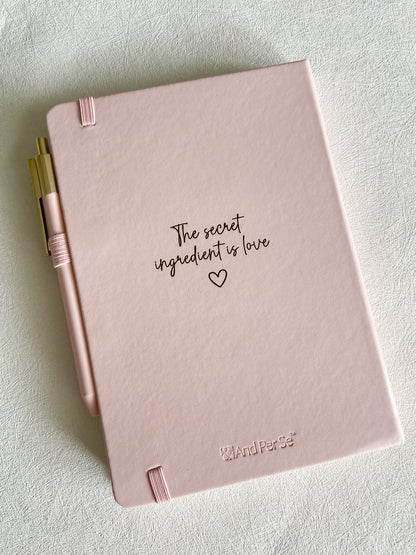 The secret
ingredient is love
And Per Se™